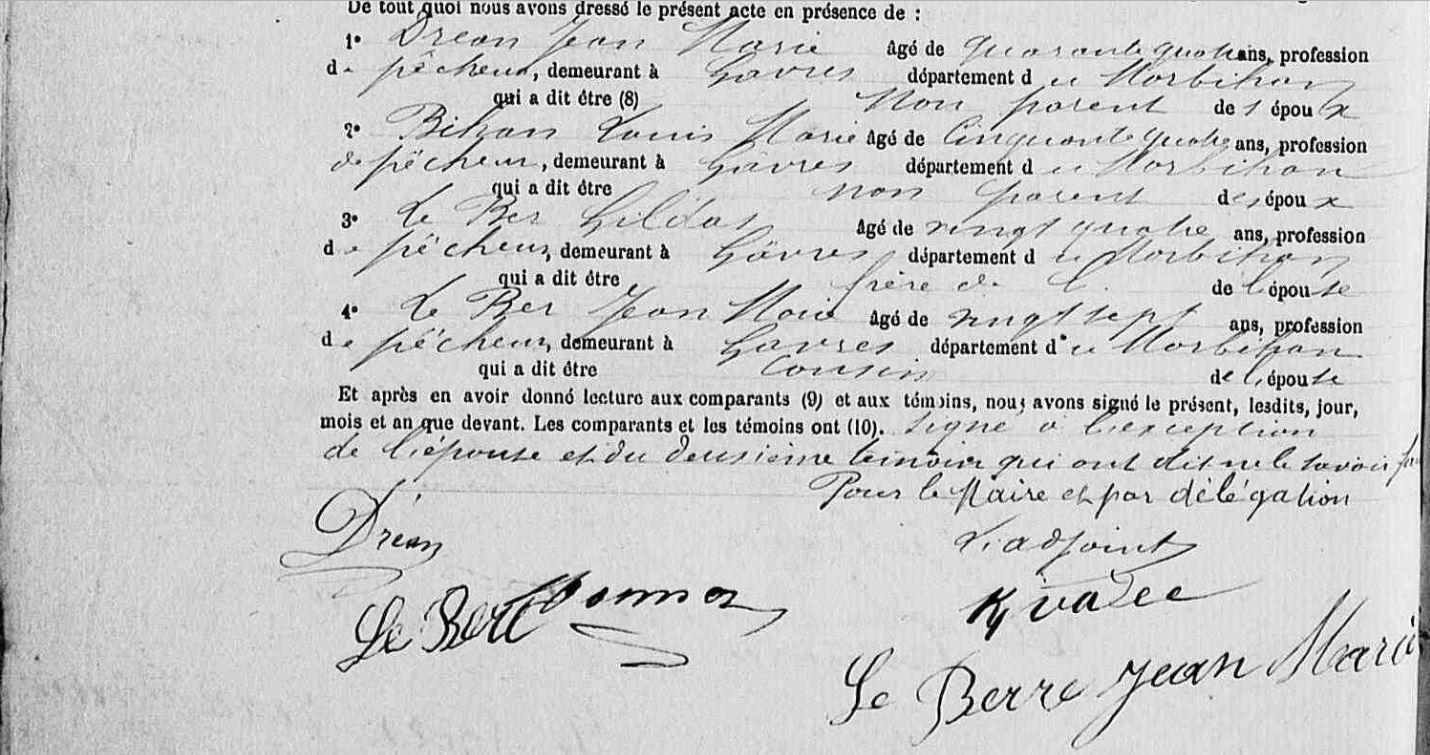 De tout quoi nous avons dressé le présent acte en présence de :
1° Dréan Jean Marie âgé de quarante quatre ans, profession
de pêcheur, demeurant à Gavres département du Morbihan
qui a dit être (8) Non parent des époux
2° Bihan Louis Marie âgé de Cinquante quatre ans, profession
de pêcheur, demeurant à Gâvres département du Morbihan
qui a dit être non parent des époux
3° Le Ber Gildas âgé de vingt quatre ans, profession
de pêcheur, demeurant à Gâvres département du Morbihan
qui a dit être frère de de l'épouse
4° Le Ber Jean Marie âgé de vingt sept ans, profession
de pêcheur, demeurant à Gavres département du Morbihan
qui a dit être Cousin de l'épouse
Et après en avoir donné lecture aux comparants (9) et aux témoins, nous avons signé le présent, lesdits, jour,
mois et an que devant. Les comparants et les témoins ont (10). signé à l'exception
de l'épouse et du deuxième témoin qui ont dit ne le savoir
Pour le Maire et par délégation
Dréan L'adjoint
Le Berre
Le Berre Jean Marie